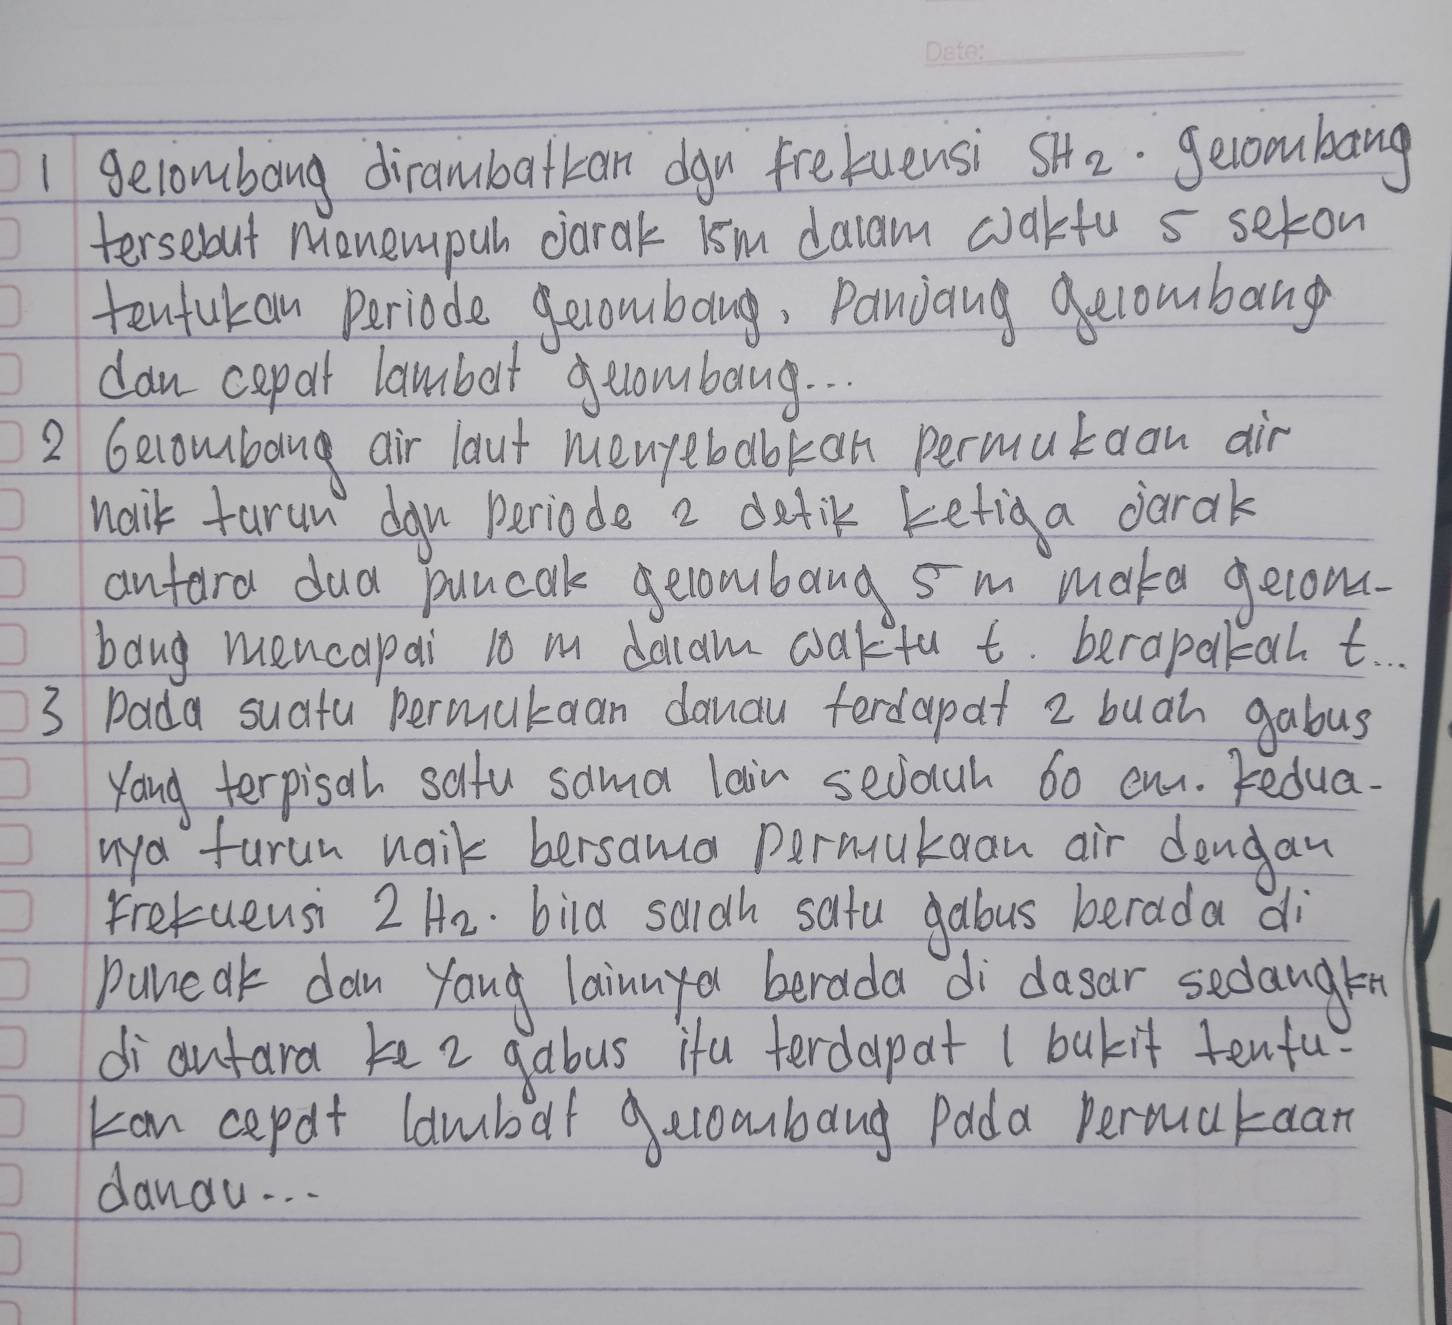 Date:
1 gelombang dirambatkan dgn frekuensi 5Hz. gelombang
tersebut menempuh jarak 15m dalam waktu 5 sekon
tentukan periode gelombang, panjang gelombang
dan cepat lambat gelombang...
2 Gelombang air laut menyebabkan permukaan air
naik turun dgn periode 2 detik ketiga jarak
antara dua puncak gelombang 5 m maka gelom-
bang mencapai 10 m dalam waktu t. berapakah t...
3 pada suatu permukaan danau terdapat 2 buah gabus
yang terpisah satu sama lain sejauh 60 cm. kedua-
nya turun naik bersama permukaan air dengan
frekuensi 2 Hz. bila salah satu gabus berada di
puncak dan yang lainnya berada di dasar sedangkn
di antara ke 2 gabus itu terdapat 1 bukit tentu-
kan cepat lambat gelombang pada permukaan
danau...